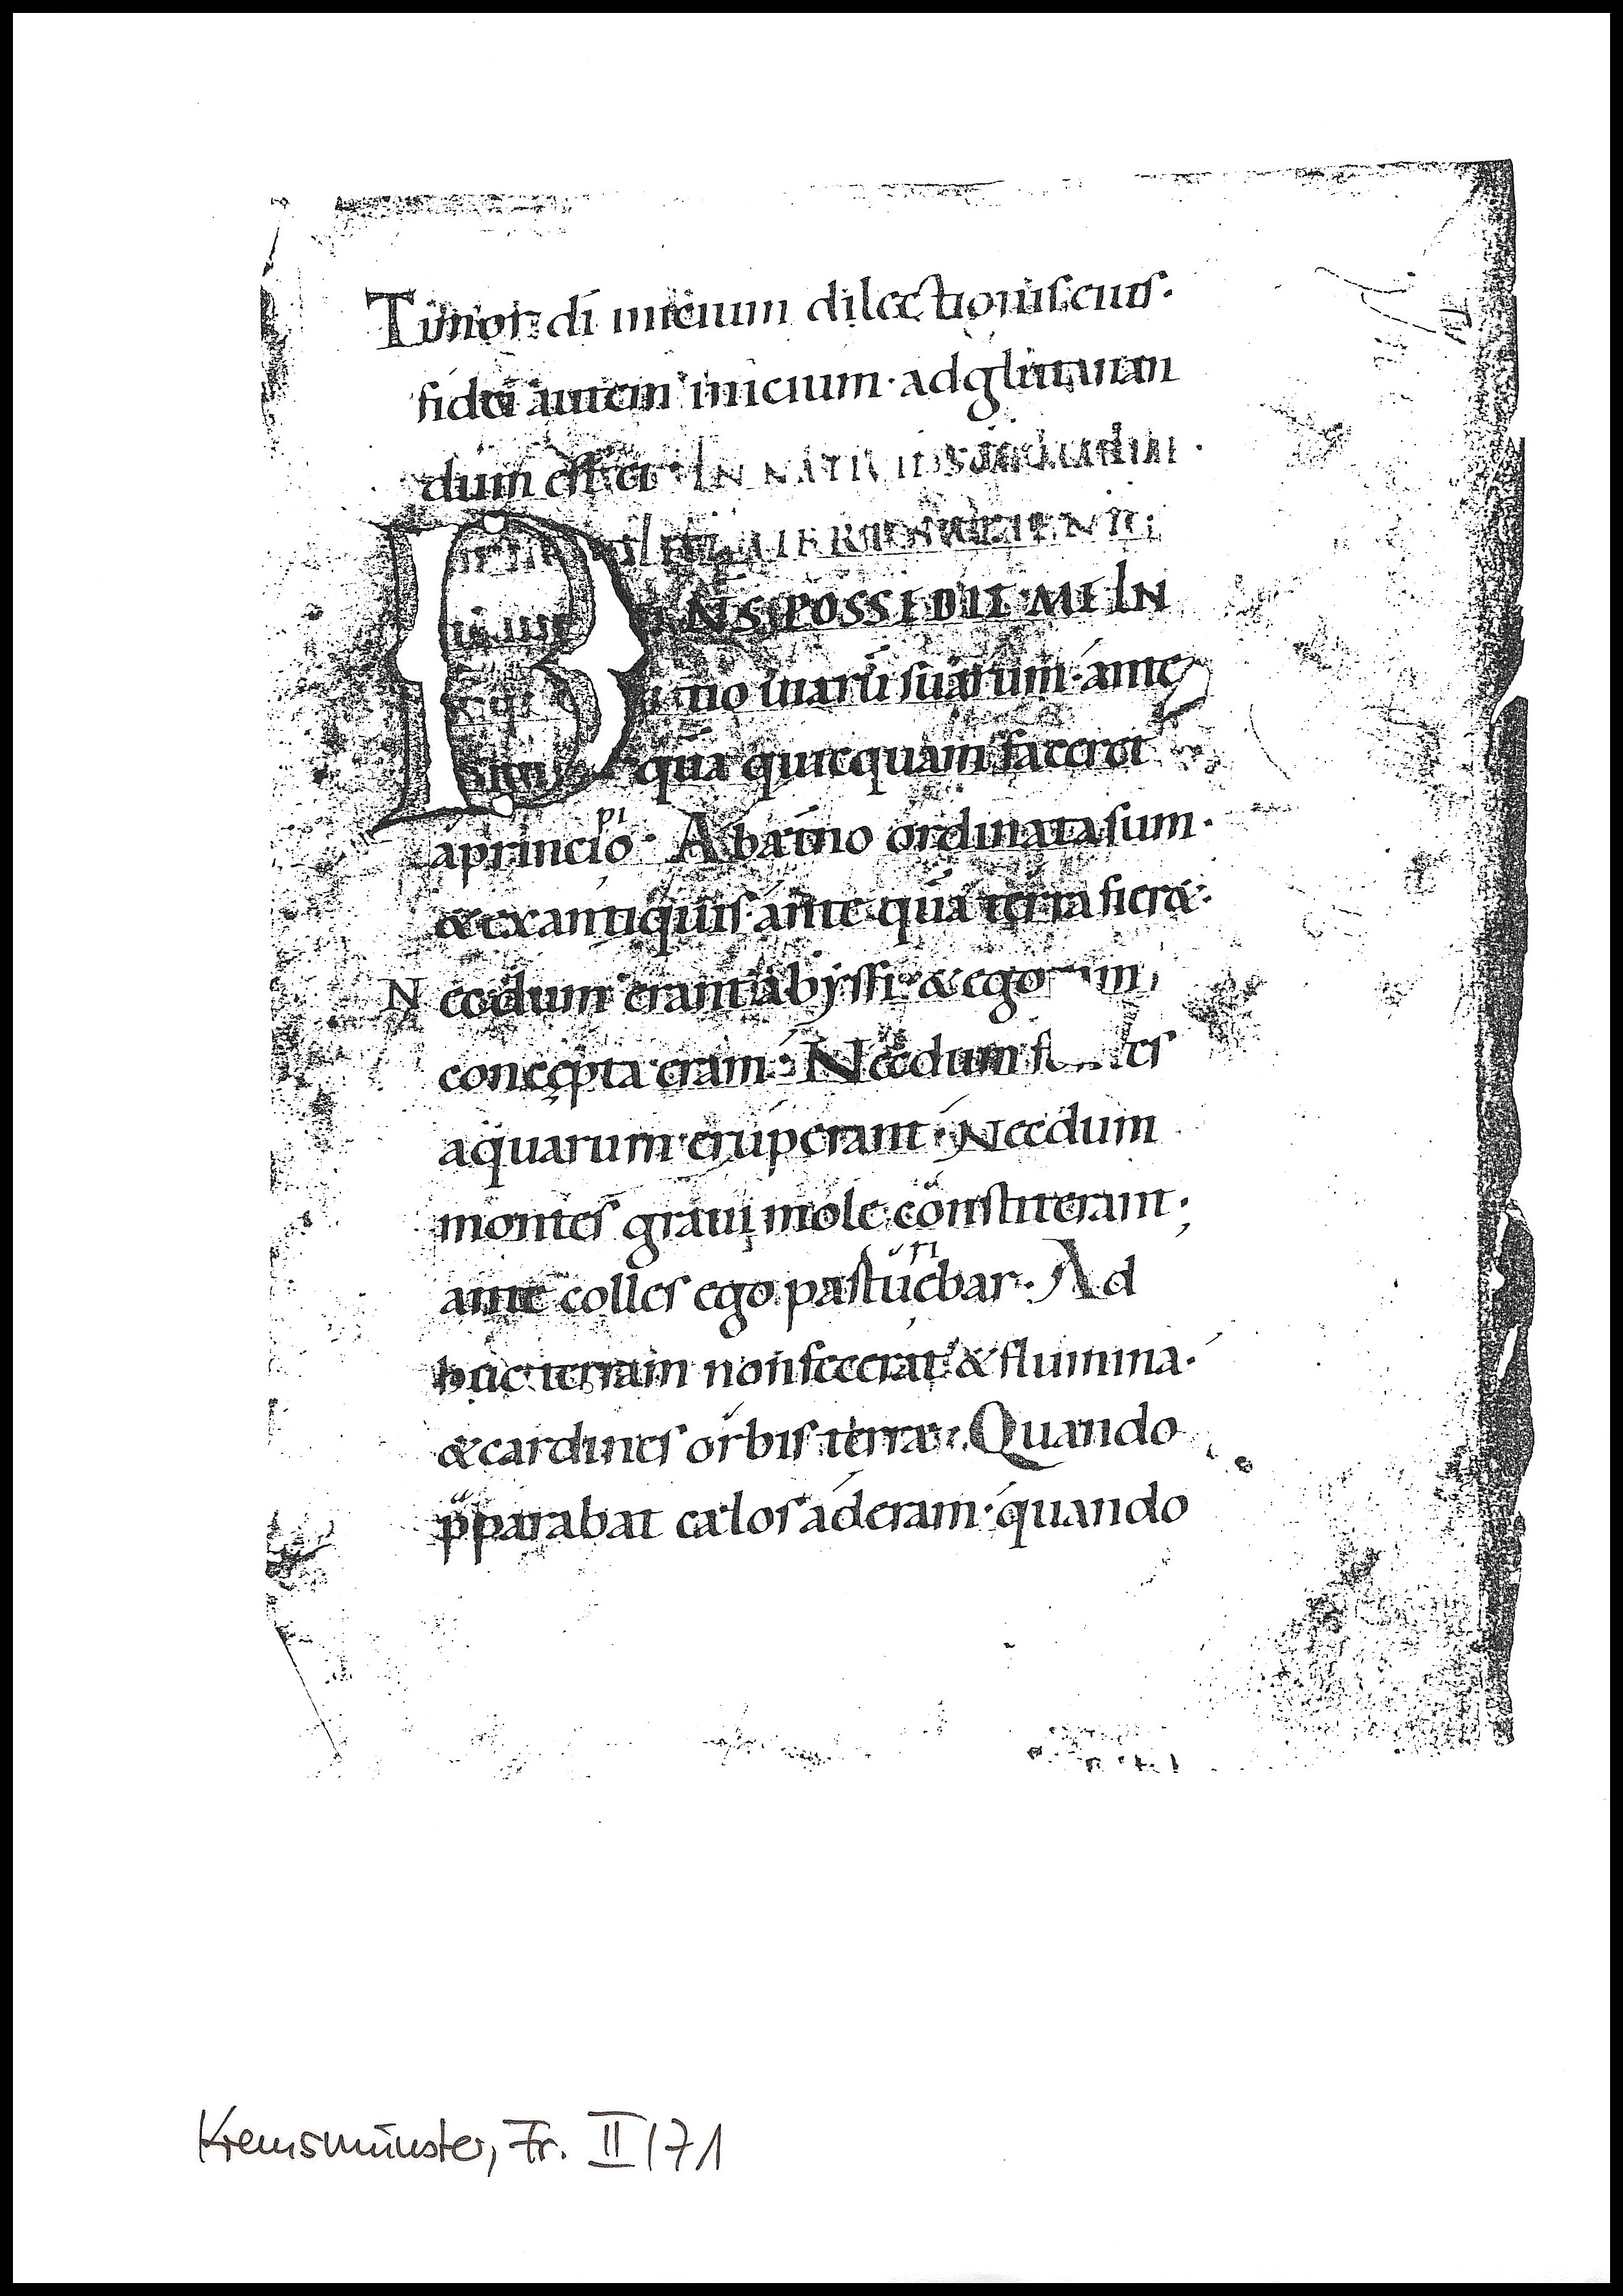 Timor di inicium dilectionis eius·
fidei autem inicium· adglutinan
dum est ei· IN NATIV
NS POSSEDIT ME IN
inicio uiarū suarum· ante
quā quicquam faceret
aprincipio· Abaeterno ordinata sum·
& exantiquis ante quā terra fier&·
Necdum erant abyssi· & ego iam
concępta eram· Necdum fontes
aquarum eruperant· Necdum
montes graui mole constiterant·
ante colles ego parturiebar· Ad
huc terram non fecerat & flumina·
& cardines orbis terrae· Quando
p̄parabat caelos aderam· quando
Kremsmünster, Fr. II/71